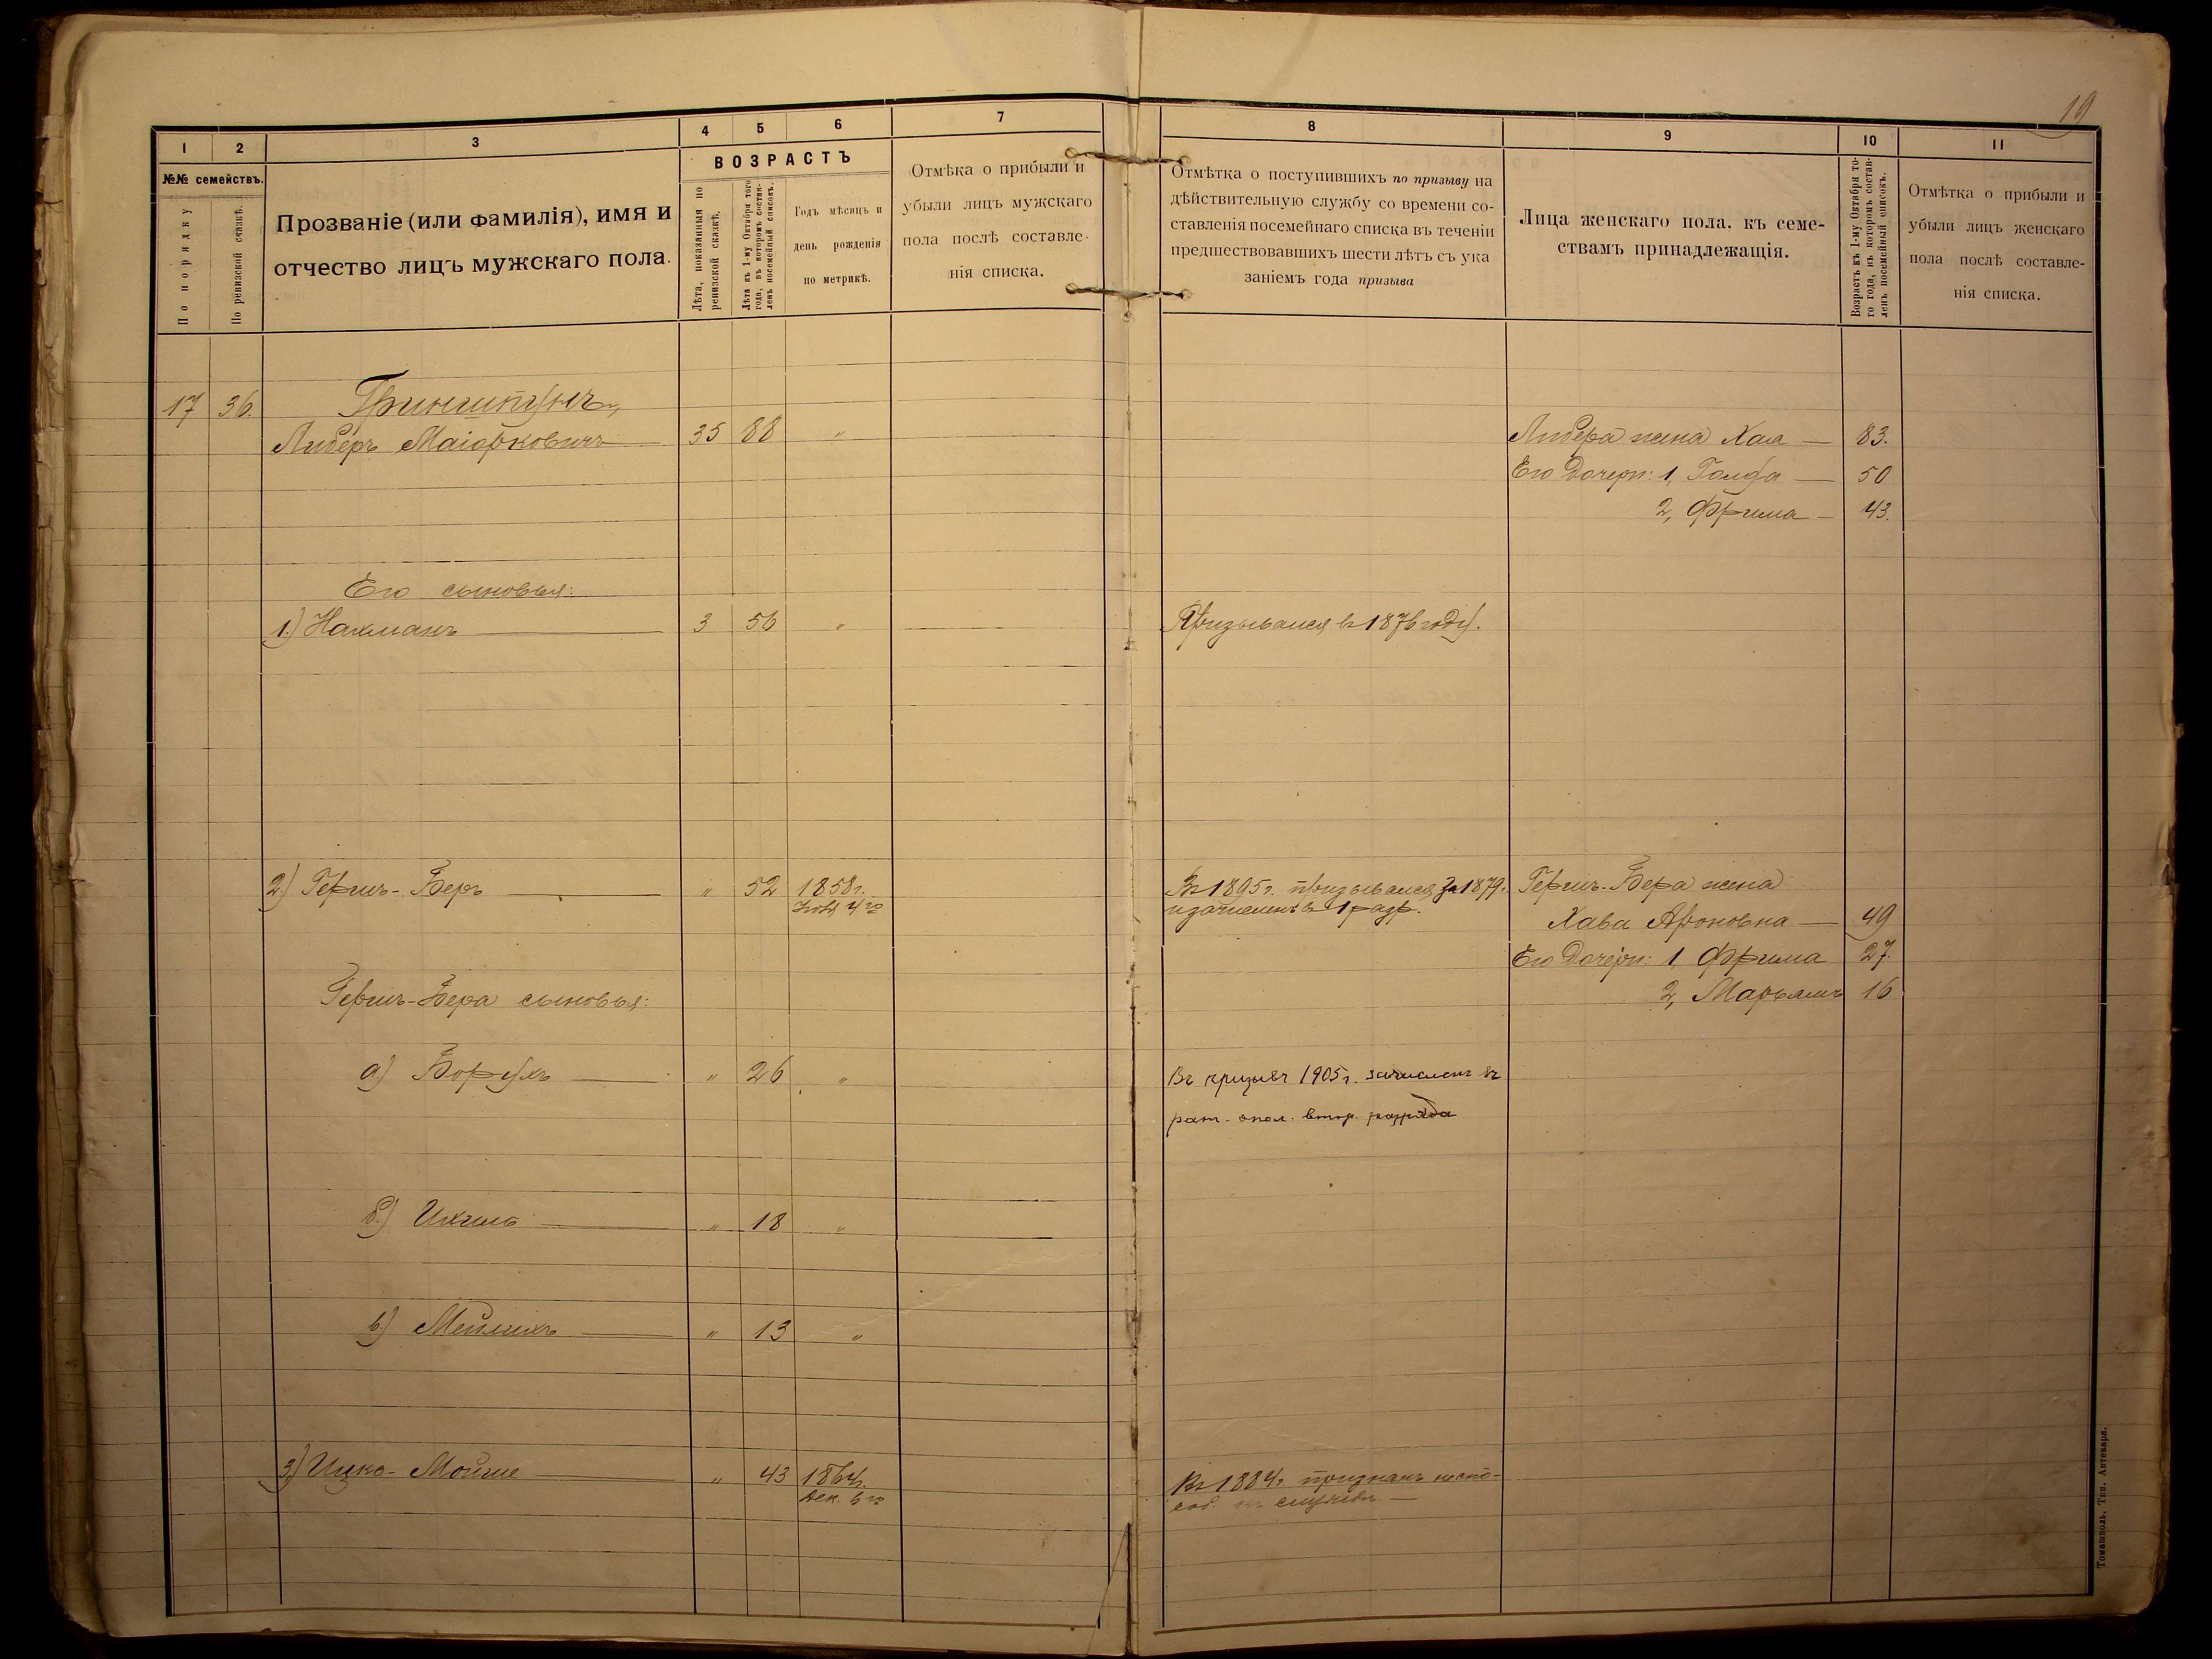 19
1 2 3 4 5 6 7
№№ семействъ.
По порядку
По ревизской сказкѣ.
Прозваніе (или фамилія), имя и
отчество лицъ мужскаго пола.
ВОЗРАСТЪ
Лѣта, показанныя по
ревизской сказкѣ.
Лѣта къ 1-му Октября того
года, въ которомъ состав-
ленъ посемейный списокъ.
Годъ мѣсяцъ и
день рожденія
по метрикѣ.
Отмѣка о прибыли и
убыли лицъ мужскаго
пола послѣ составле-
нія списка.
8 9 10 11
Отмѣтка о поступившихъ по призыву на
дѣйствительную службу со времени со-
ставленія посемейнаго списка въ теченіи
предшествовавшихъ шести лѣтъ съ ука
заніемъ года призыва
Лица женскаго пола. къ семе-
ствамъ принадлежащія.
Возрастъ къ 1-му Октября то-
го года, въ которомъ состав-
ленъ посемейный списокъ.
Отмѣтка о прибыли и
убыли лицъ женскаго
пола послѣ составле-
нія списка.
17 36. Гринштунъ,
Либеръ Маіорковичъ — 35 88 "
Либера жена Хая — 83.
Его дочери: 1, Голда — 50
2, Фрима — 43.
Его сыновья:
1.) Нахманъ — 3 56 "
Призывался въ 1876 году.
2.) Гершъ-Беръ — " 52 1858 г.
4 го
Въ 1895 г. призывался за 1879 г.
и зачисленъ в 1 разр.
Гершъ-Бера жена
Хава Ароновна — 49
Его дочери: 1, Фрима 27.
2, Марьямъ 16
Гершъ-Бера сыновья:
а) Борухъ — " 26 "
Въ призывъ 1905 г. зачисленъ въ
рат. опол. втор. разряда
б.) Ихиль — " 18 "
в.) Мейлихъ — " 13 "
3.) Ицко-Мойше — " 43 1864 г.
Дек. 6 го
Въ 1884 г. признанъ неспо-
соб. къ службѣ —
Томашполь, Тип. Аптекаря.